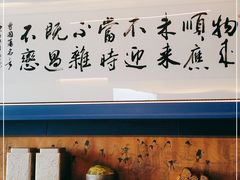 物来
順應
未来
不迎
當時
不雜
既過
不戀